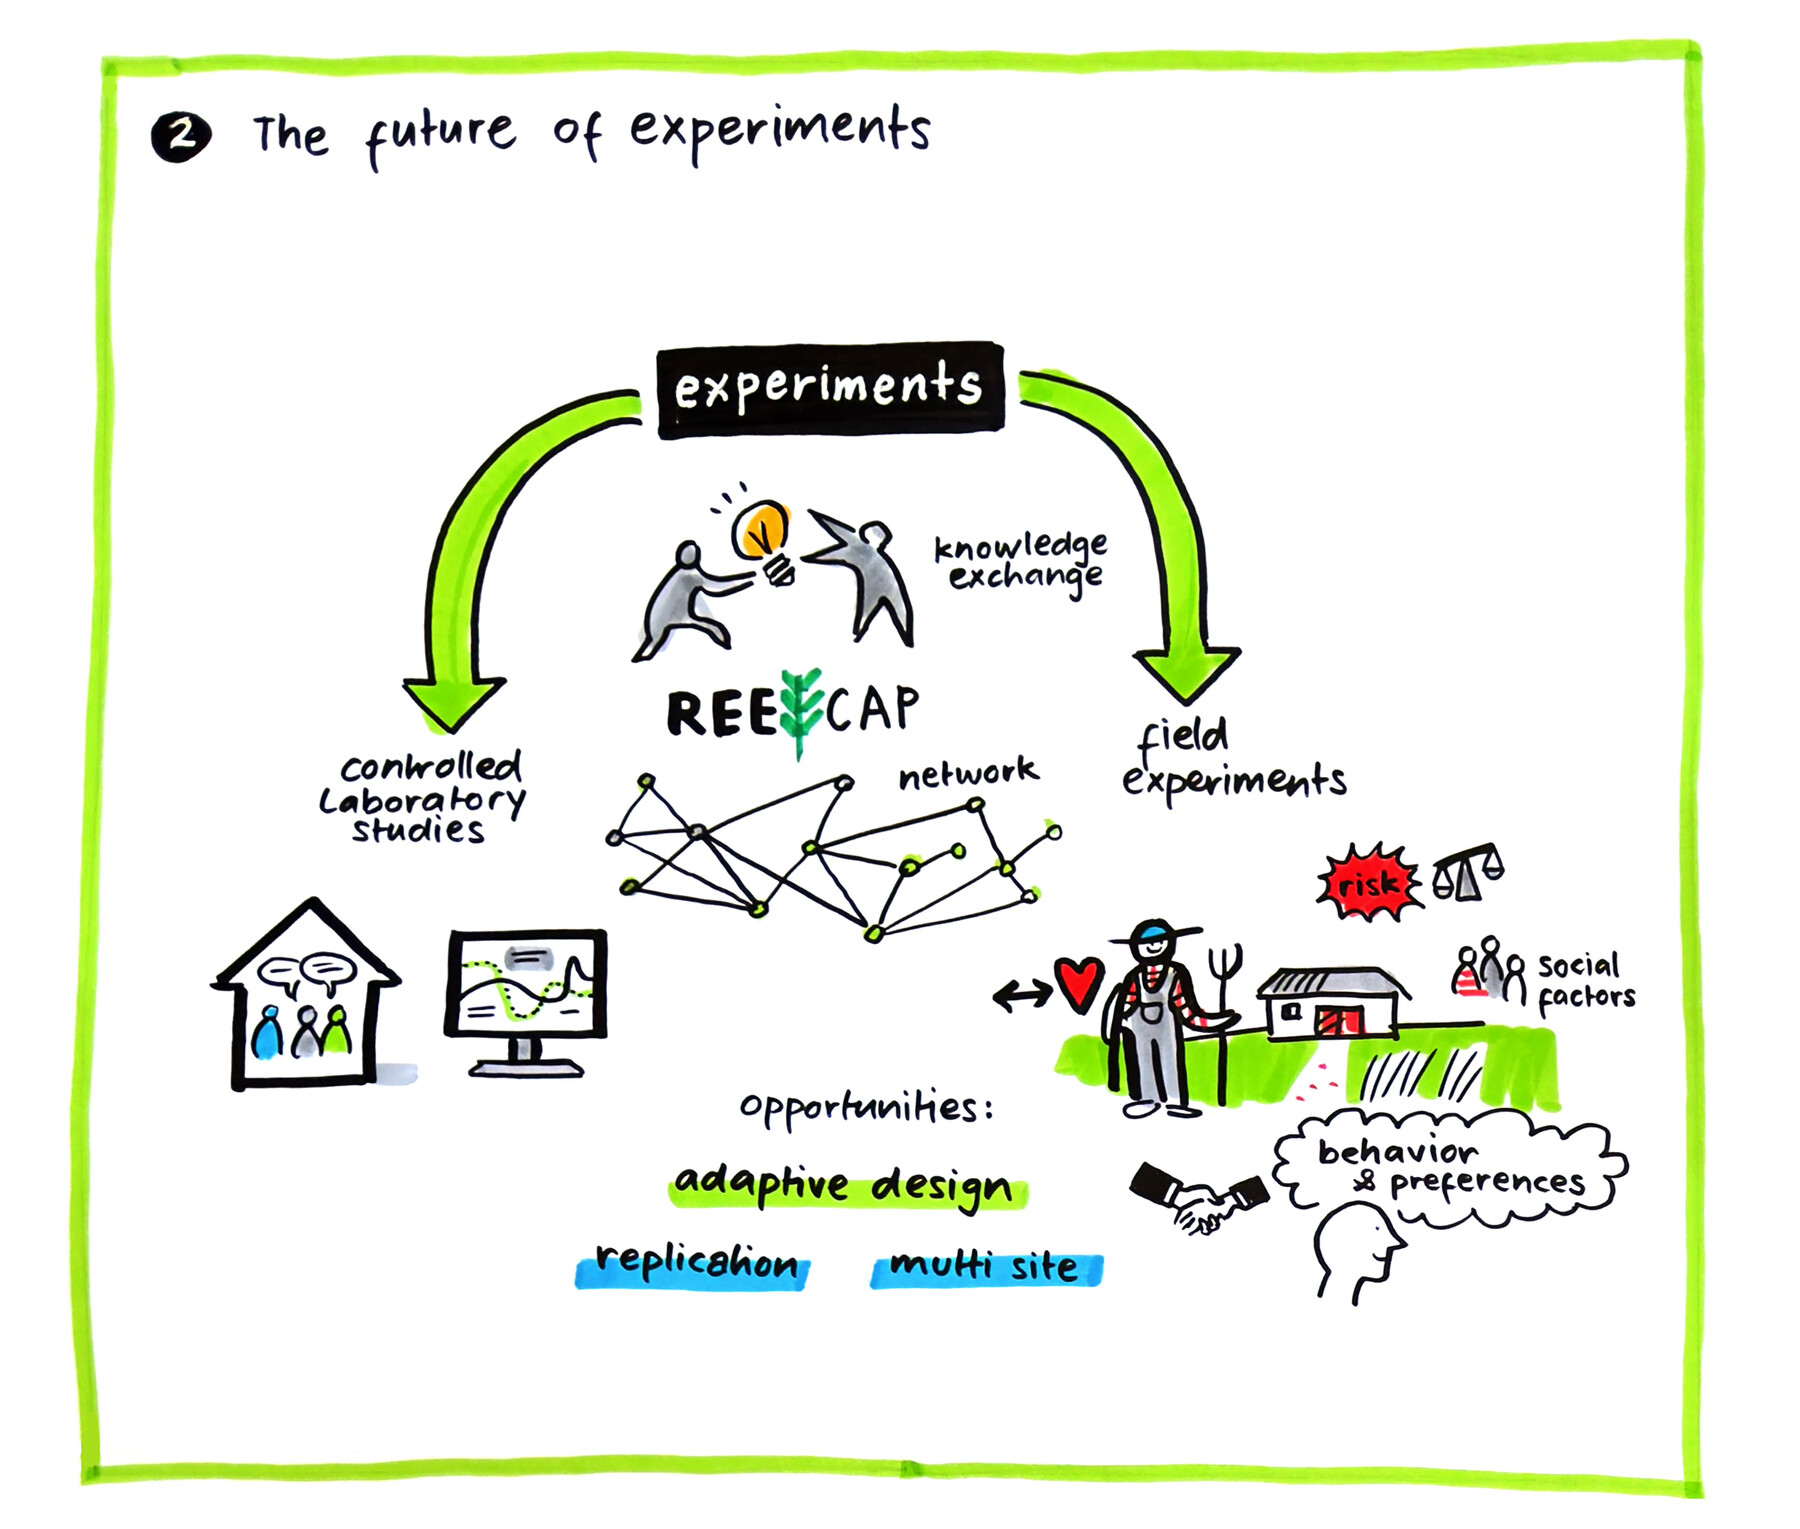 2 The future of experiments
experiments
knowledge
exchange
REECAP
network
controlled
Laboratory
studies
field
experiments
risk
social
factors
opportunities:
adaptive design
replication
multi site
behavior
& preferences